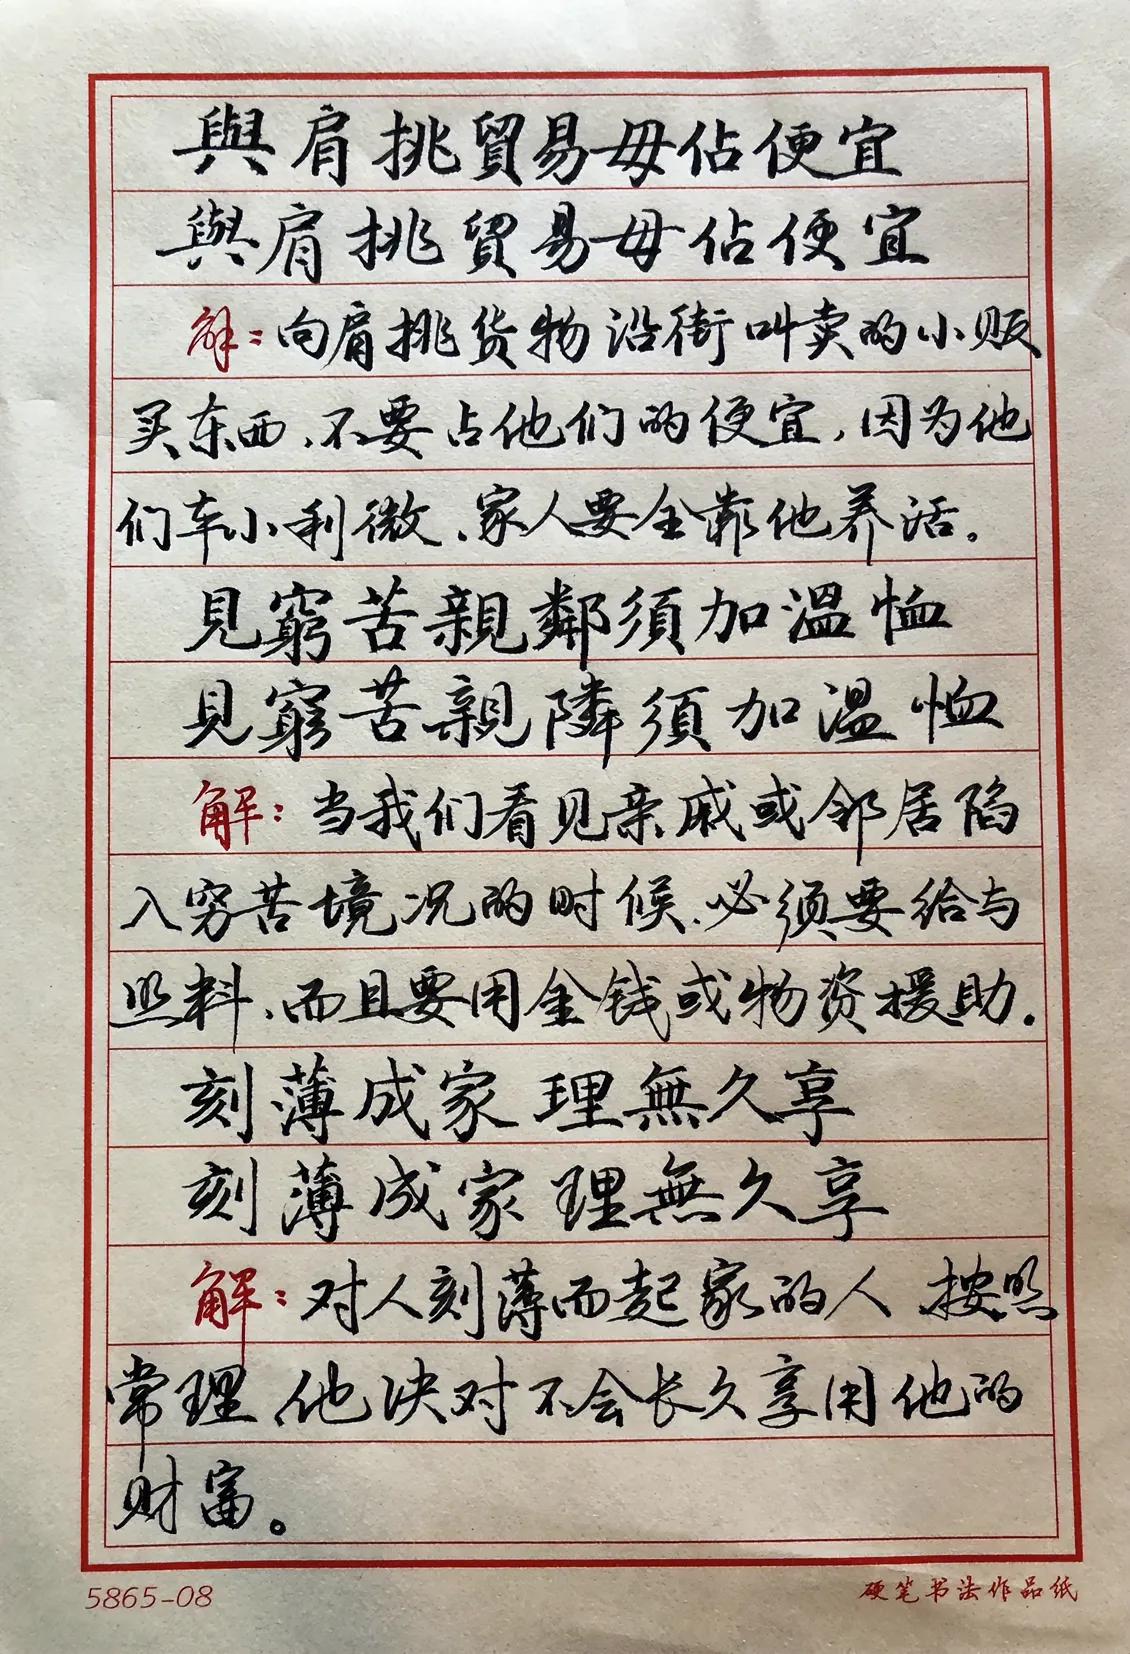 與肩挑貿易毋佔便宜
與肩挑貿易毋佔便宜
解：向肩挑货物沿街叫卖的小贩
买东西、不要占他们的便宜，因为他
们车小利微、家人要全靠他养活。
見窮苦親鄰須加溫恤
見窮苦親隣須加溫恤
解：当我们看见亲戚或邻居陷
入穷苦境况的时候、必须要给与
照料、而且要用金钱或物资援助.
刻薄成家理無久享
刻薄成家理無久享
解：对人刻薄而起家的人按照
常理、他决对不会长久享用他的
财富。
5865-08 硬笔书法作品纸